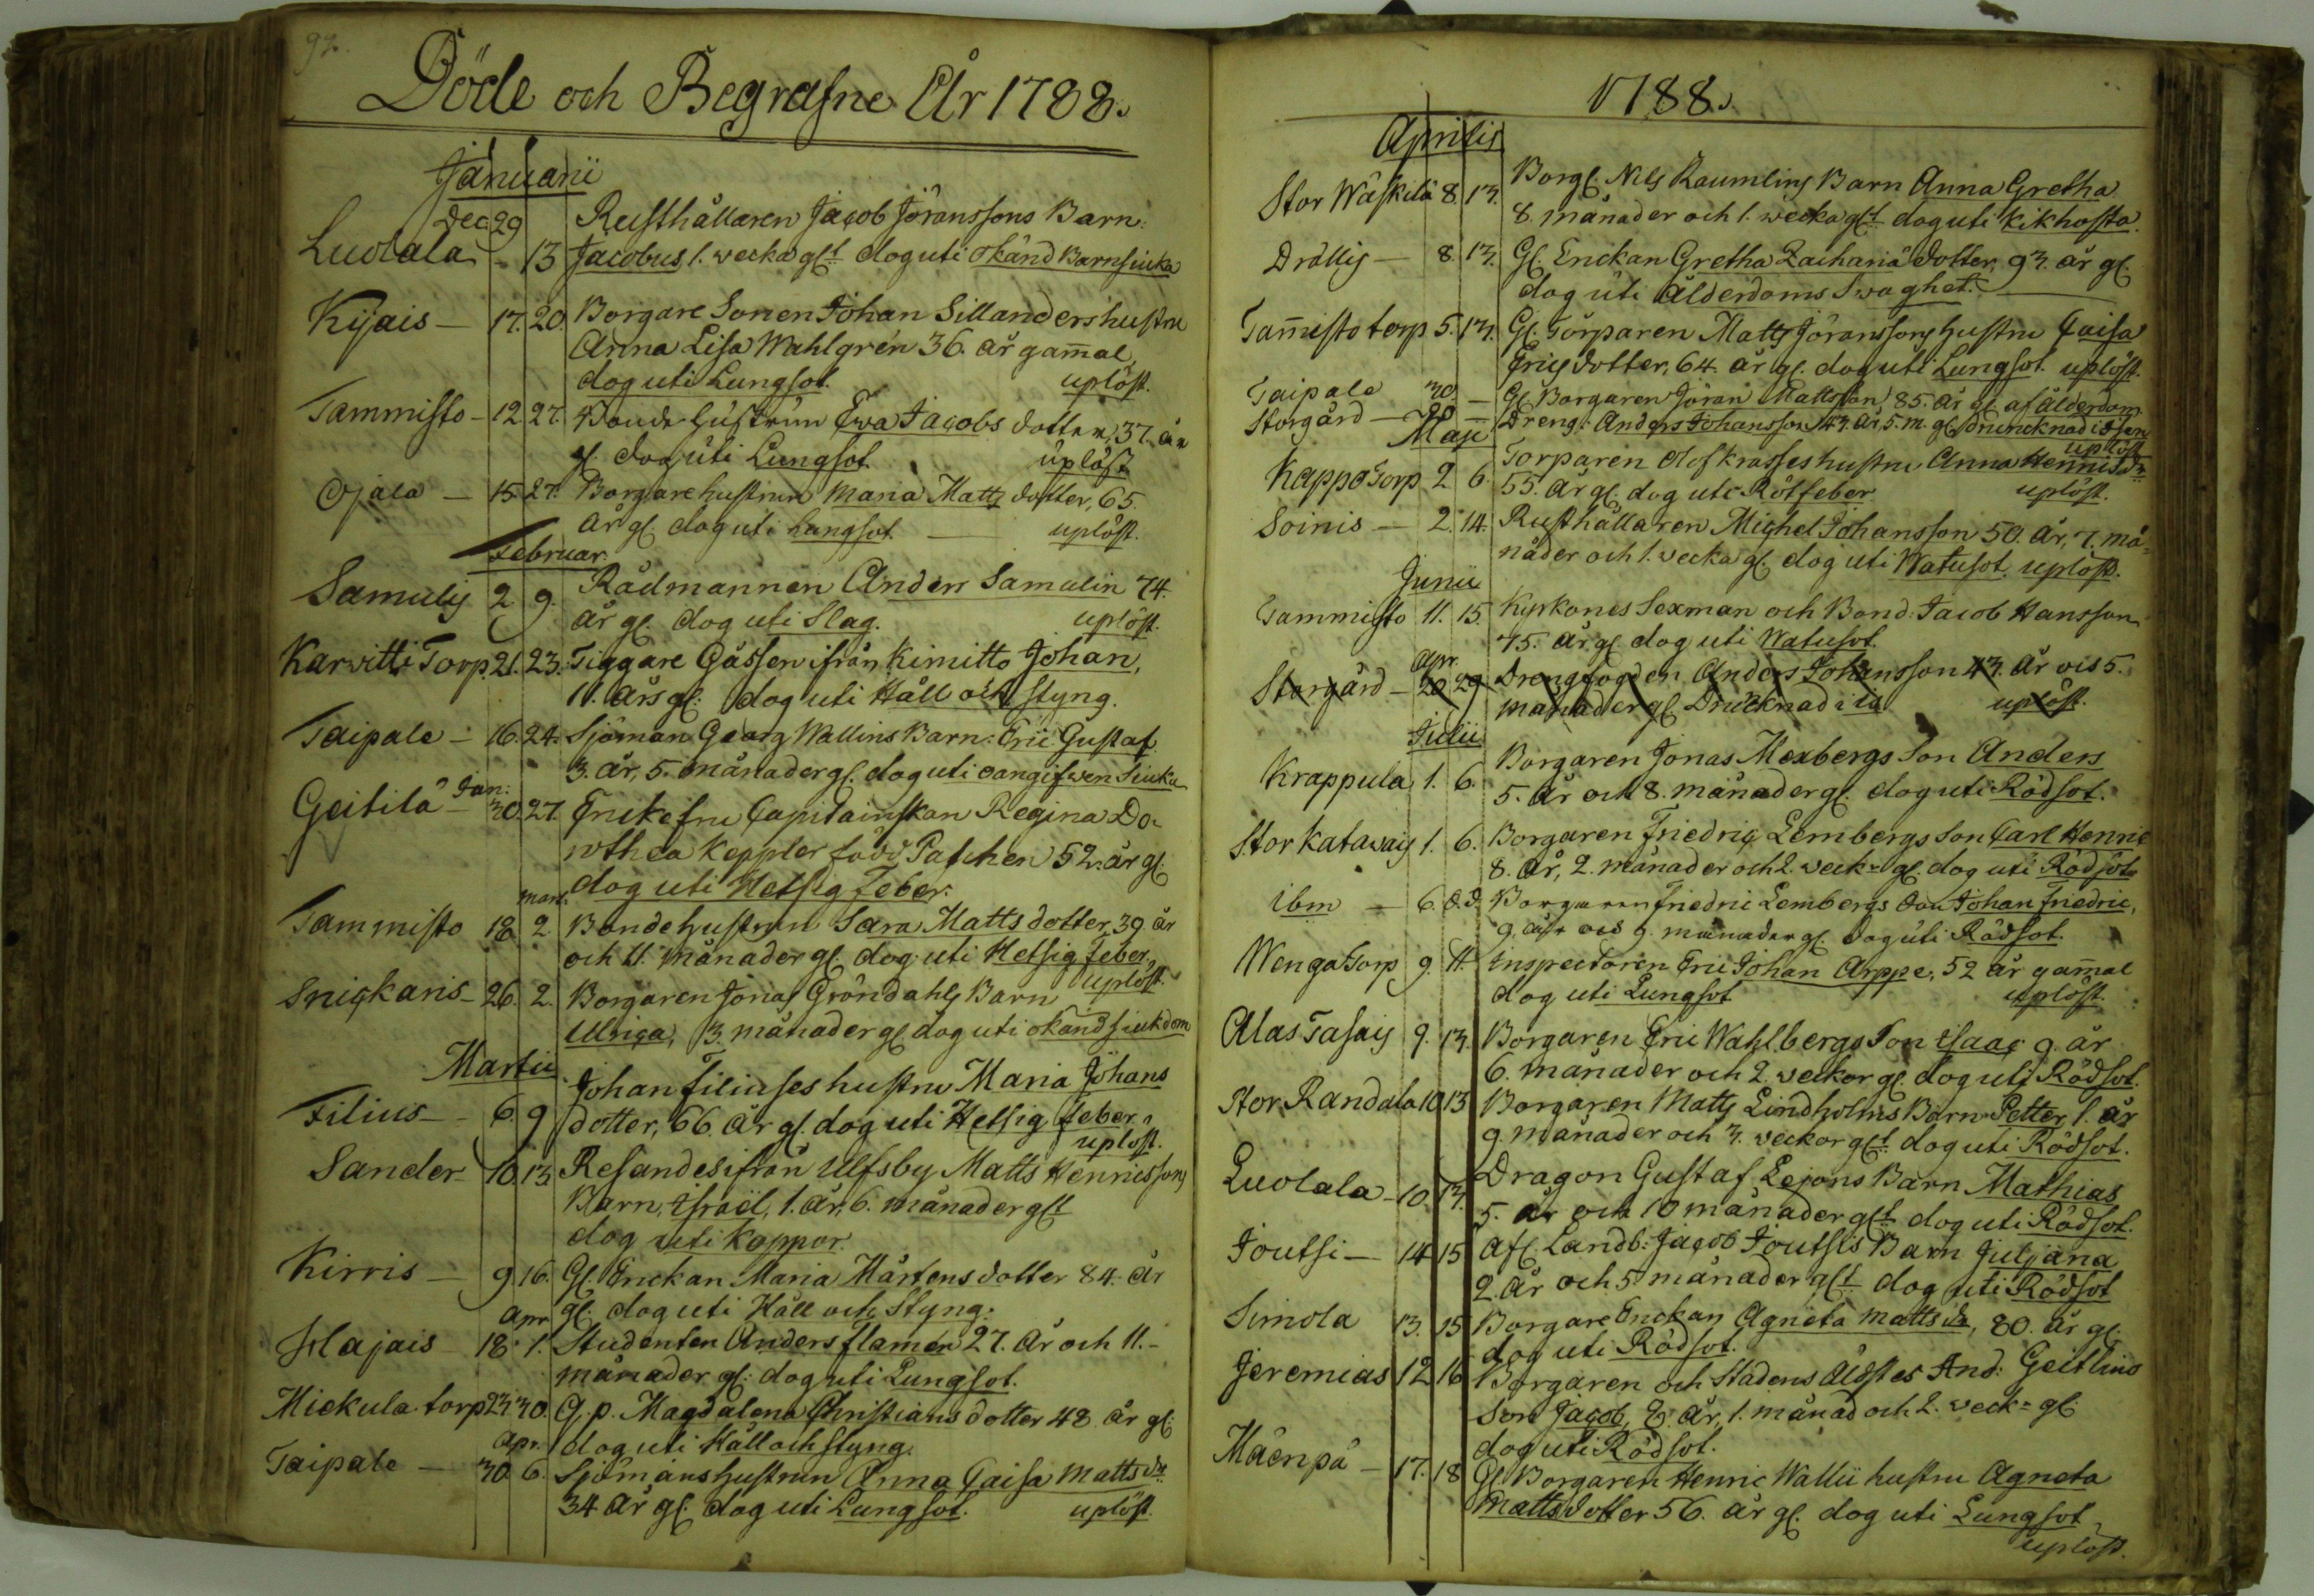 92.
Döde och Begrafne År 1788.
Januarii
Dec. 29 Rusthållaren Jacob Jöranssons Barn
Luolala - 13 Jacobus 1. wecka glt dog uti okänd Barnsiuka
Kijais - 17. 20. Borgare Sonen Johan Sillanders hustru
Anna Lisa Wahlgrén 36. år gam̄al,
dog uti Lungsot. uplöst.
Tammisto - 12 27. Bonde hustrun Ewa Jacobs dotter, 37. år
gl. dog uti Lungsot uplöst
Ojala - 15. 27. Borgare hustrun Maria Matts dotter, 65.
år gl. dog uti Lungsot. uplöst.
Februar.
Samulis 2. 9. Rådmannen Anders Samulin 74.
år gl. dog uti Slag. uplöst.
Karwitti Torp. 21. 23. Tiggare Gåssen ifrån Kimitto Johan,
11. års gl. dog uti Håll och styng.
Taipale - 16. 24. Sjöman Georg Wallins Barn: Eric Gustaf
3. år, 5. månader gl. dog uti oangifwen Siuka
Geitila Jan: 30. 27. Enkefru Capitainskan Regina Do-
rothea Keppler född Patchen 52. år gl.
dog uti Hetsig Feber.
mart.
Tammisto 18 2 Bondehustrun Sara Matts dotter, 39 år
och 11. månader gl. dog uti Hetsig feber,
uplöst.
Snickaris - 26. 2. Borgaren Jonas Gröndahls Barn
Ulrica, 3. månader gl. dog uti okänd siukdom
Martii
Johan Filiuses hustru Maria Johans
Filius - 6. 9 dotter, 66. år gl. dog uti Hetsig feber,
uplöst.
Sander - 10 13 Resandes ifrån Ulfsby Matts Henricssons
Barn, Israël, 1. år, 6. månader glt
dog uti Koppor.
Kirris - 9 16. Gl. Enckan Maria Mårtens dotter 84. år
Apr. gl. dog uti Håll och Styng.
Hajais - 18. 1. Studenten Anders Flamén 27. år och 11.-
månader gl: dog uti Lungsot.
Mickula torp 23 30. Q. p. Magdalena Christians dotter 48 år gl.
apr. dog uti Håll och styng.
Taipale - 30 6. Sjömans hustrun Anna Caisa Matts dr
34 år gl. dog uti Lungsot. uplöst.
1788.
Aprilis
Stor Wäskilä 8. 13. Borgl. Nils Raumlins Barn Anna Gretha
8. månader och 1. wecka glt dog uti Kikhosta.
Drällis - 8. 13. Gl. Enckan Gretha Zachariæ dotter, 93. år gl.
dog uti Ålderdoms Swaghet.
Tam̄isto torp 5. 13. Gl. Torparen Matts Jöranssons hustru Caisa
Erics dotter, 64. år gl. dog uti Lungsot. uplöst.
Taipale 30. - Gl. Borgaren Jöran Mattsson 85. år gl. af Ålderdom.
Storgård - 20 - Dreng: Anders Johansson 43. år, 5. m. gl. druncknad i
uplöst
Maji
Kappo Torp 2 6. Torparen Olof Krasses hustru Anna Henrics dr
55. år gl. dog uti Rötfeber. uplöst.
Soinis - 2. 14. Rusthållaren Michel Johansson 50. år, 7. må-
nader och 1. wecka gl. dog uti Watusot. uplöst.
Junii
Tammisto 11. 15. Kyrkones Sexman och Bond: Jacob Hansson
75. år gl. dog uti Watusot.
Apr.
Storgård - 20 29 Drengfogden Anders Johansson 43. år ock 5.
månader gl. Druncknad uplöst.
Julii
Krappula 1. 6. Borgaren Jonas Mexbergs Son Anders
5. år och 8. månader gl. dog uti Rödsot.
Stor Katawais 1. 6. Borgaren Friedric Lembergs Son Carl Henric
8. år, 2. månader och 2. weck- gl. dog uti Rödsot
ibm - 6. d.d. Borgaren Friedric Lembergs Son Johan Friedric,
9. år och 9. månader gl. dog uti Rödsot.
Wenga Torp 9 11. Inspectoren Eric Johan Arppe, 52 år gam̄al
dog uti Lungsot uplöst.
Alas Tasais 9. 13. Borgaren Eric Wahlbergs Son Isaac 9. år
6. månader och 2. weckor gl. dog uti Rödsot.
Stor Randala 10 13 Borgaren Matts Lindholms Barn Petter 1. år
9. månader och 3. weckor glt dog uti Rödsot.
Luolala - 10. 13. Dragon Gustaf Lejons Barn Mathias
5. år och 10 månader glt dog uti Rödsot.
Joutsi - 14 15 Afl. Landb: Jacob Joutsis Barn Juljana
2. år och 5 månader glt dog uti Rödsot
Simola 13. 15 Borgare Enckan Agneta Matts dr, 80. år gl.
dog uti Rödsot.
Jeremias 12 16 Borgaren och Stadens Äldstes And: Geitlins
Son Jacob, 8. år, 1. månad och 2. weck- gl.
dog uti Rödsot.
Mäenpä - 17. 18 Gl. Borgaren Henric Wallii hustru Agneta
Mattsdotter 56. år gl. dog uti Lungsot,
uplöst.